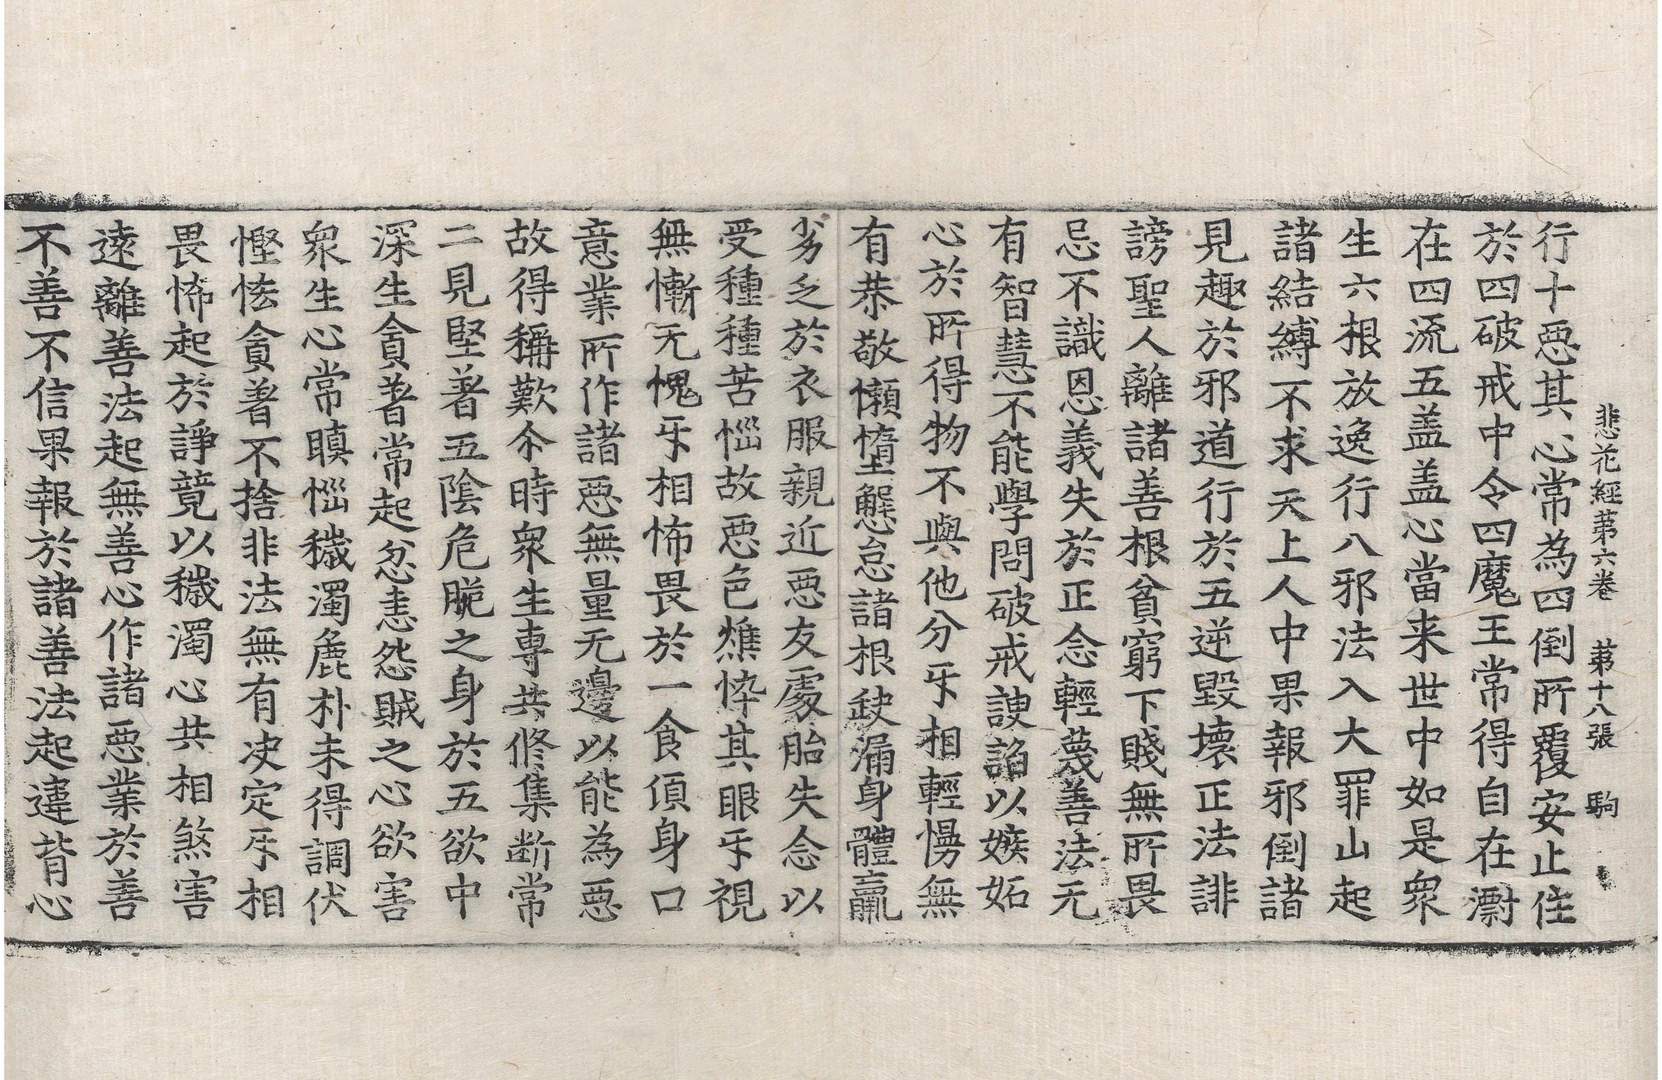 悲花經第六卷 第十八張 駒
行十惡其心常為四倒所覆安止住
於四破戒中令四魔王常得自在漂
在四流五盖盖心當来世中如是衆
生六根放逸行八邪法入大罪山起
諸結縛不求天上人中果報邪倒諸
見趣於邪道行於五逆毀壞正法誹
謗聖人離諸善根貧窮下賤無所畏
忌不識恩義失於正念輕蔑善法无
有智慧不能學問破戒諛諂以嫉妬
心於所得物不與他分㸦相輕慢無
有恭敬懶墮懈怠諸根缺漏身體羸
劣乏於衣服親近惡友處胎失念以
受種種苦惱故惡色燋悴其眼㸦視
無慚无愧㸦相怖畏於一食頃身口
意業所作諸惡無量无邊以能為惡
故得稱歎尒時衆生專共修集断常
二見堅著五陰危脆之身於五欲中
深生貪著常起忿恚怨賊之心欲害
衆生心常瞋惱穢濁麁朴未得調伏
慳悋貪著不捨非法無有决定㸦相
畏怖起於諍競以穢濁心共相煞害
遠離善法起無善心作諸惡業於善
不善不信果報於諸善法起違背心